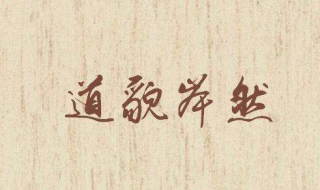 道貌岸然